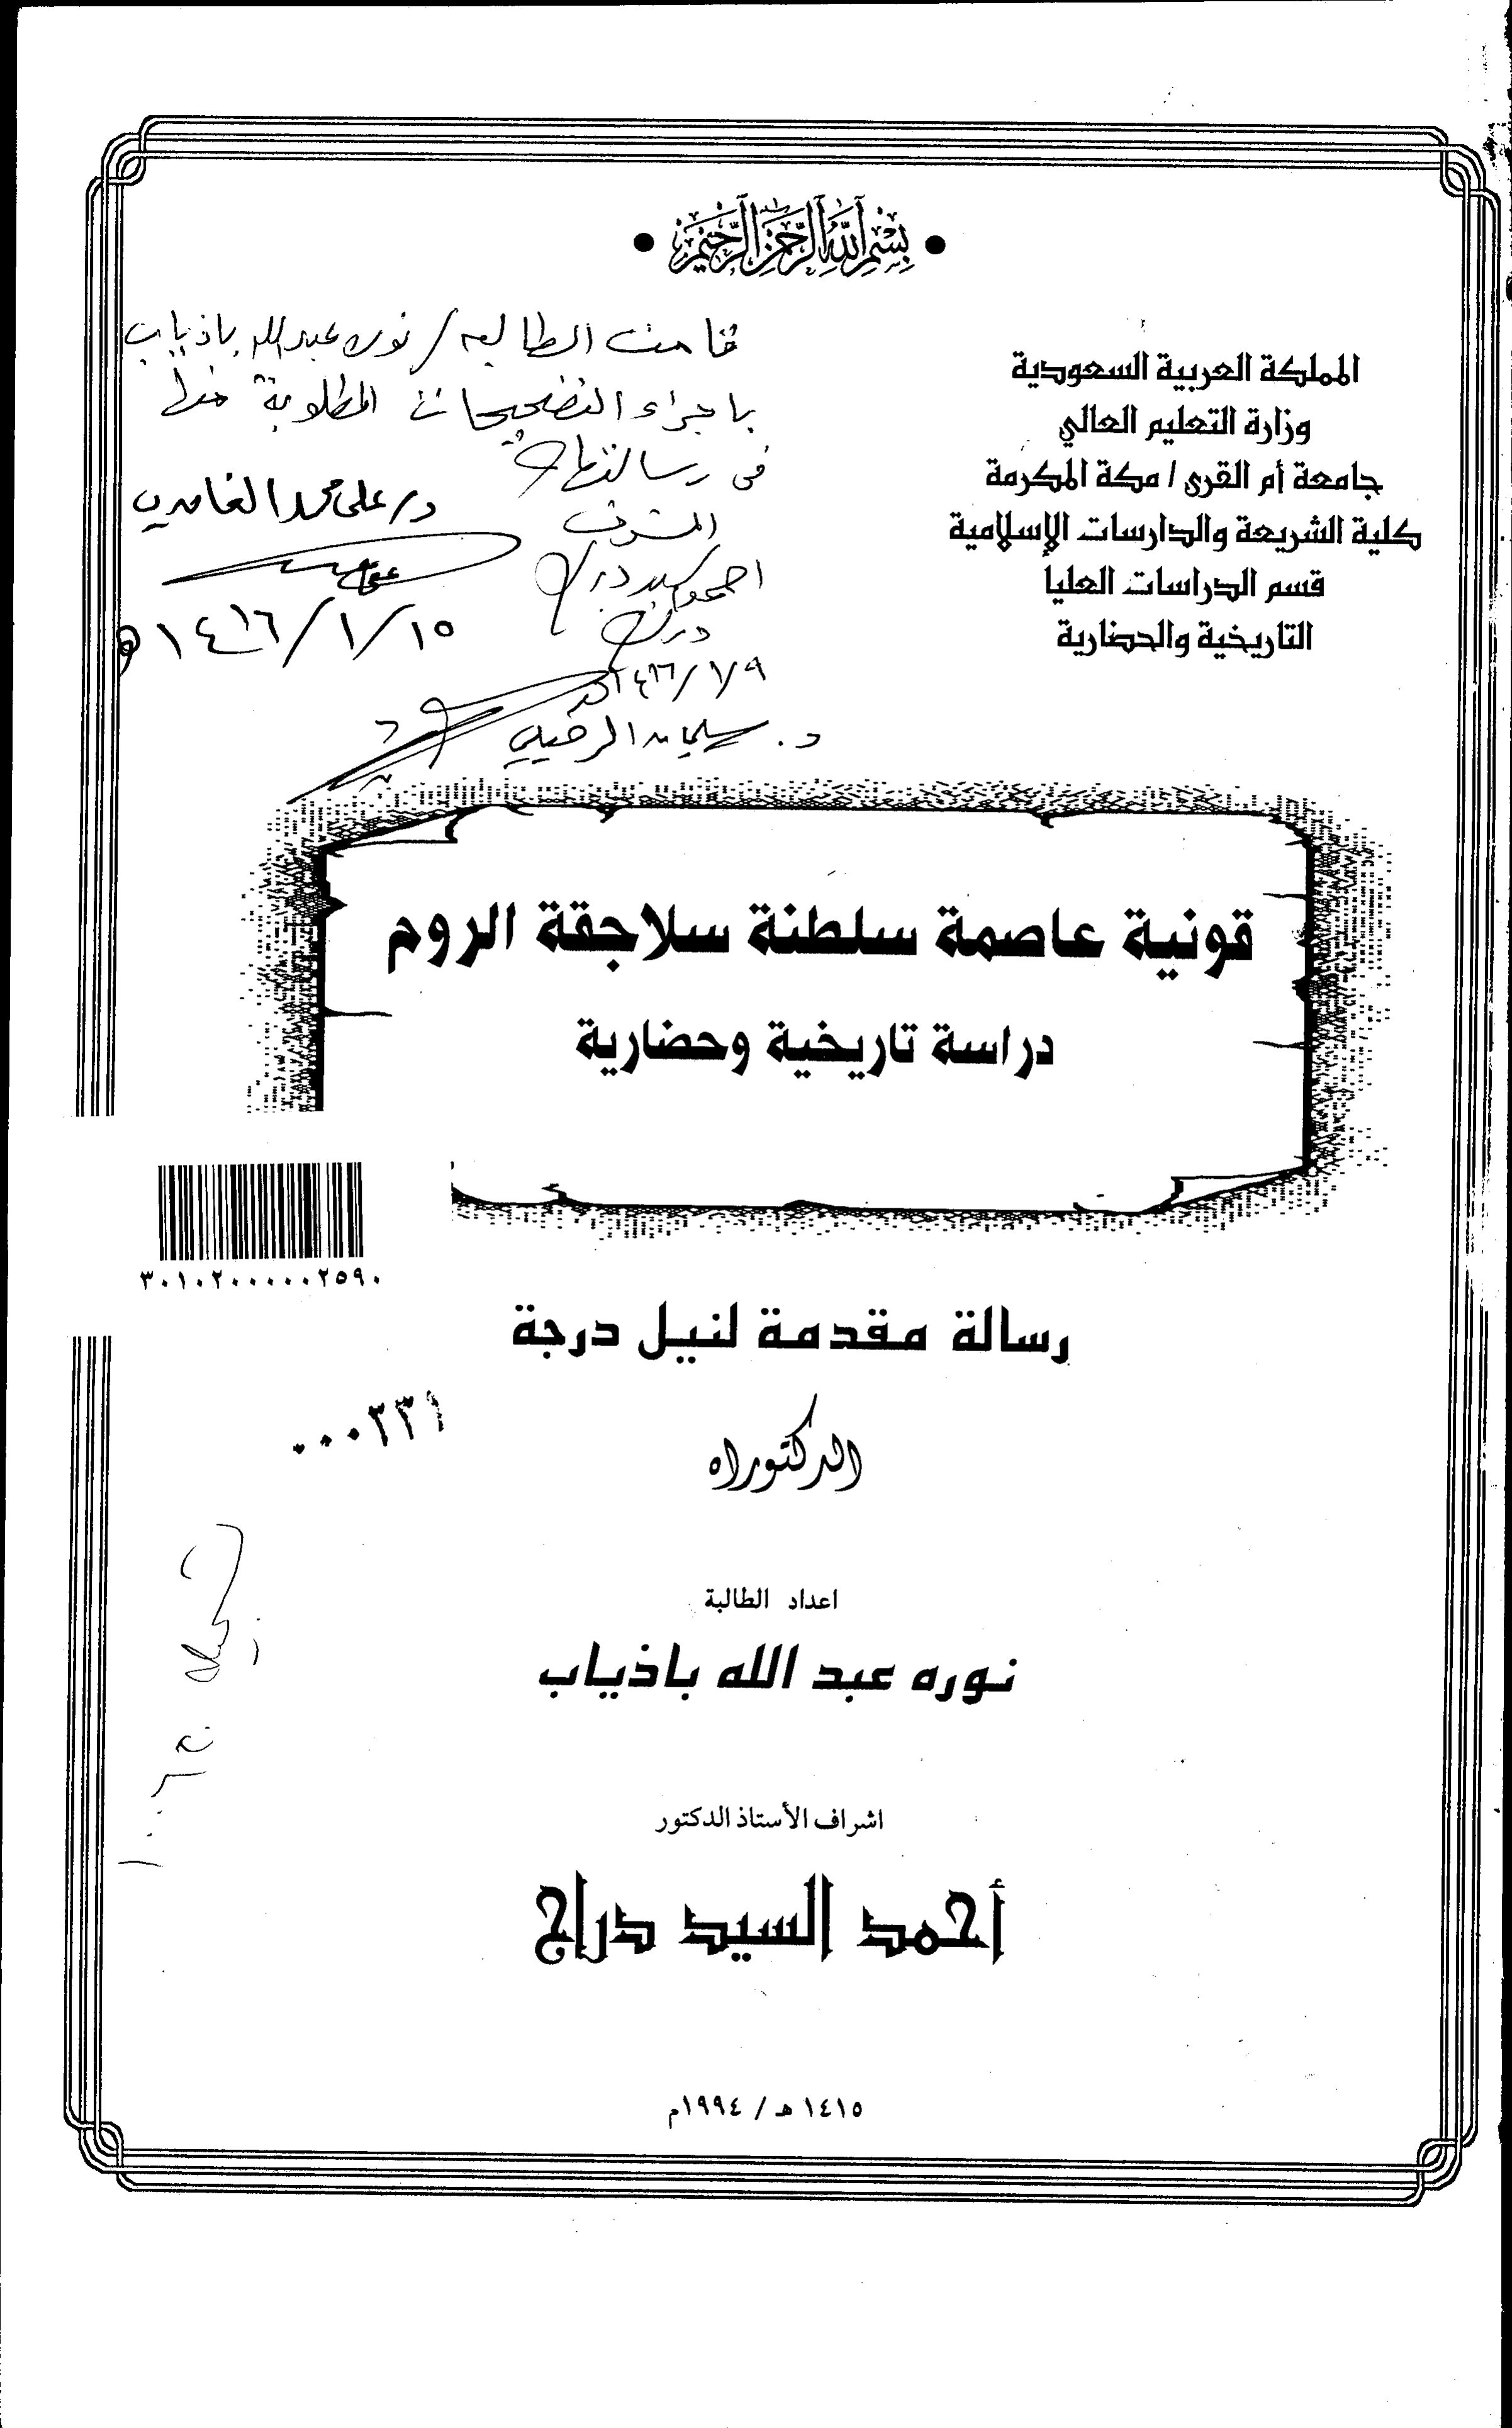 بسم الله الرحمن الرحيم
المملكة العربية السعودية
وزارة التعليم العالي
جامعة أم القرى / مكة المكرمة
كلية الشريعة والدارسات الإسلامية
قسم الدراسات العليا
التاريخية والحضارية
قامت الطالبه / نوره عبدالله باذياب
باجراء التصحيحات المطلوبة منها
فى رسالتها
المشرف
احمد السيد دراج
١٤١٦/١/٩هـ
د/ على محمد الغامدي
١٤١٦/١/١٥هـ
د. سليمان الرحيلي
قونية عاصمة سلطنة سلاجقة الروم
دراسة تاريخية وحضارية
٣٠١٠٢٠٠٠٠٠٢٥٩٠
رسالة مقدمة لنيل درجة
الدكتوراه
اعداد الطالبة
نوره عبد الله باذياب
اشراف الأستاذ الدكتور
أحمد السيد دراج
١٤١٥ هـ / ١٩٩٤م